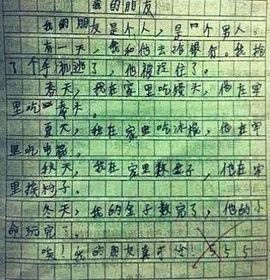 我的朋友
我的朋友是个人,是一个男人。
有一天,我和他去抢银行。我抢
了个手机逃了,他被捉住了。
春天,我在家里吃春天,他在牢
里吃春天。
夏天,我在家里吃冰棒,他在牢
里吃电棒。
秋天,我在家里数金子,他在牢
里挨棍子。
冬天,我的金子数完了,他的小
命玩完了。
唉!我的朋友真可怜!555